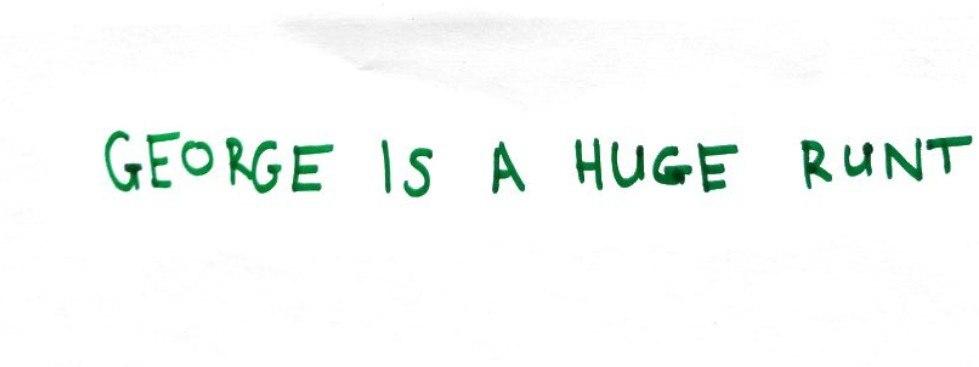 GEORGE IS A HUGE RUNT